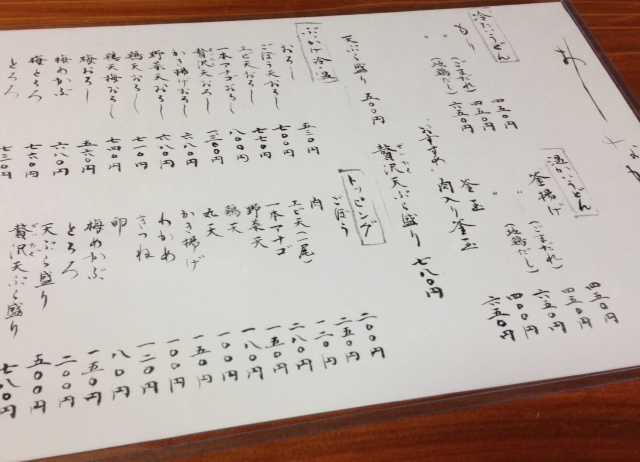 おし
冷たいうどん
もり 四五〇円
〃(ごまだれ) 四五〇円
〃(地鶏だし) 六五〇円
温かいうどん
釜揚げ 四五〇円
〃(ごまだれ) 四五〇円
〃(地鶏だし) 六五〇円
釜玉 四〇〇円
肉入り釜玉 六五〇円
おすすめ
天ぷら盛り 五〇〇円
贅沢天ぷら盛り 七八〇円
ぶっかけ冷・温
おろし 五三〇円
ごぼう天おろし 七〇〇円
エビ天おろし 七七〇円
一本アナゴおろし 八〇〇円
贅沢天おろし 一三〇〇円
かき揚げおろし 六八〇円
野菜天おろし 六八〇円
鶏天おろし 七一〇円
鶏天梅おろし 七四〇円
梅おろし 五六〇円
梅めかぶ 六八〇円
梅とろろ 七六〇円
とろろ 七三〇円
トッピング
ごぼう 二〇〇円
肉 二五〇円
エビ天(一尾) 一二〇円
一本アナゴ 二八〇円
野菜天 一五〇円
鶏天 一八〇円
丸天 一〇〇円
かき揚げ 一五〇円
わかめ 一〇〇円
きつね 一二〇円
卵 八〇円
梅めかぶ 一五〇円
とろろ 二〇〇円
天ぷら盛り 五〇〇円
贅沢天ぷら盛り 七八〇円